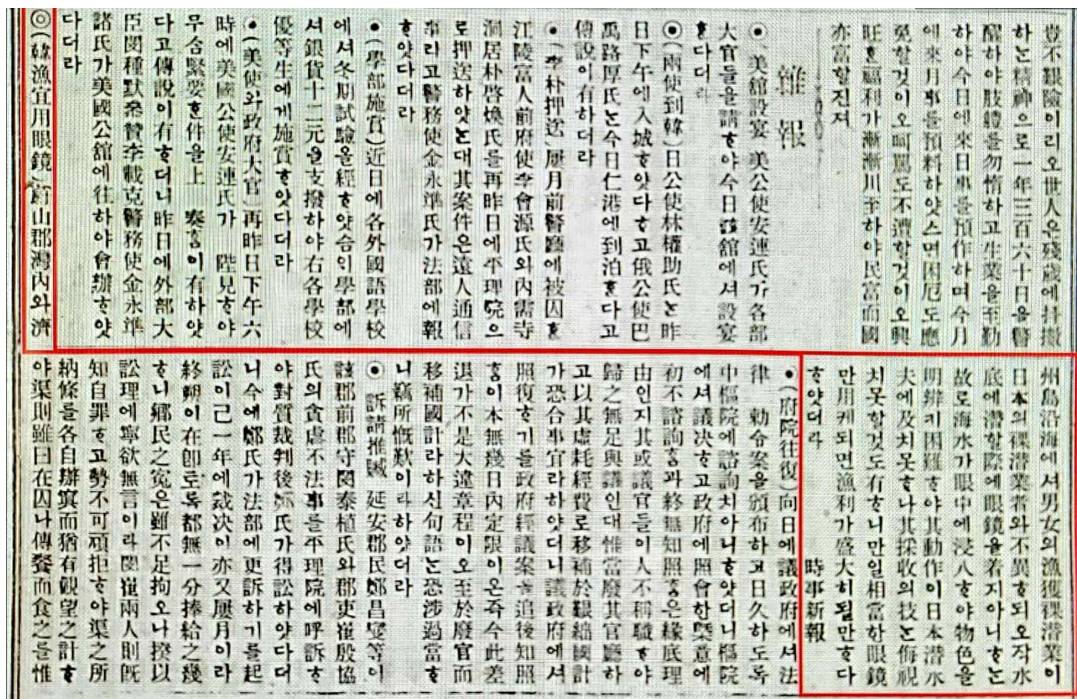 豈不艱險이리오世人은殘歲에抖擻
하ᄂᆞᆫ精神으로一年三百六十日을警
醒하야肢體를勿惰하고生業을至勤
하야今日에來日事를預作하며今月
에來月事를預料하얏스면困厄도應
免할것이오呵罵도不遭할것이오興
旺ᄒᆞᆫ福利가漸漸川至하야民富而國
亦富할진져
雜報
◉美舘設宴 美公使安連氏가各部
大官들을請ᄒᆞ야今日該舘에셔設宴
ᄒᆞᆫ다더라
◉(兩使到韓)日公使林權助氏ᄂᆞᆫ昨
日下午에入城ᄒᆞ얏다ᄒᆞ고俄公使巴
禹路厚氏ᄂᆞᆫ今日仁港에到泊ᄒᆞᆫ다고
傳說이有하더라
●(李朴押送)屢月前警廳에被囚ᄒᆞᆫ
江陵富人前府使李會源氏와內需寺
洞居朴啓煥氏를再昨日에平理院으
로押送하얏ᄂᆞᆫ대其案件은遠人通信
事라고警務使金永準氏가法部에報
ᄒᆞ얏다더라
●(學部施賞)近日에各外國語學校
에셔冬期試驗을經ᄒᆞ얏슴ᄋᆡ學部에
셔銀貨十二元을支撥하야右各學校
優等生에게施賞ᄒᆞ얏다더라
●(美使와政府大官)再昨日下午六
時에美國公使安連氏가 陛見ᄒᆞ야
무合緊要ᄒᆞᆫ件을上 奏ᄒᆞᆷ이有하얏
다고傳說이有ᄒᆞ더니昨日에外部大
臣閔種默叅贊李載克警務使金永準
諸氏가美國公舘에往하야會辦ᄒᆞ얏
다더라
◎(韓漁宜用眼鏡)蔚山郡灣內와濟
州島沿海에셔男女의漁獲裸潛業이
日本의裸潛業者와不異ᄒᆞ되오작水
底에潛할際에眼鏡을着지아니ᄒᆞᄂᆞᆫ
故로海水가眼中에浸入ᄒᆞ야物色을
明辨키困難ᄒᆞ야其動作이日本潛水
夫에及치못ᄒᆞ나其採收의技ᄂᆞᆫ侮視
치못할것도有ᄒᆞ니만일相當한眼鏡
만用케되면漁利가盛大히될만ᄒᆞ다
ᄒᆞ얏더라 時事新報
●(府院往復)向日에議政府에셔法
律 勅令案을頒布하고日久하도록
中樞院에諮詢치아니ᄒᆞ얏더니樞院
에셔議决ᄒᆞ고政府에照會한槩意에
初不諮詢ᄒᆞᆷ과終無知照ᄒᆞᆷ은緣底理
由인지其或議官들이人不稱職ᄒᆞ야
歸之無足與議인대惟當廢其官廳하
고以其虛耗經費로移補於艱絀國計
가恐合事宜라하얏더니議政府에셔
照復ᄒᆞ기를政府經議案을追後知照
ᄒᆞᆷ이本無幾日內定限이온즉今此差
退가不是大違章程이오至於廢官而
移補國計라하신句語ᄂᆞᆫ恐涉過當ᄒᆞ
니竊所慨歎이라하얏더라
◉訴請推贓 延安郡民鄭昌燮等이
該郡前郡守閔泰植氏와郡吏崔殷協
氏의貪虐不法事를平理院에呼訴ᄒᆞ
야對質裁判後鄭氏가得訟하얏다더
니今에鄭氏가法部에更訴하기를起
訟이已一年에裁决이亦又屢月이라
終朔이在卽토록都無一分捧給之幾
ᄒᆞ니鄕民之寃은雖不足拘오나揆以
訟理에寧欲無言이라閔崔兩人則旣
知自罪ᄒᆞ고勢不可頑拒ᄒᆞ야渠之所
納條를各自辦實而猶有觀望之計ᄒᆞ
야渠則雖曰在囚나傳餐而食之를惟